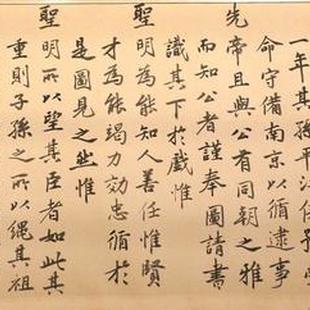 一年其孫平江伯
命守備南京以循逮事
先帝且與公有同朝之雅
而知公者謹奉圖請書
識其下於戲惟
聖明為能知人善任惟賢
才為能竭力効忠循於
是圖見之惟
聖明所以望其臣者如此其
重則子孫之所以繩其祖